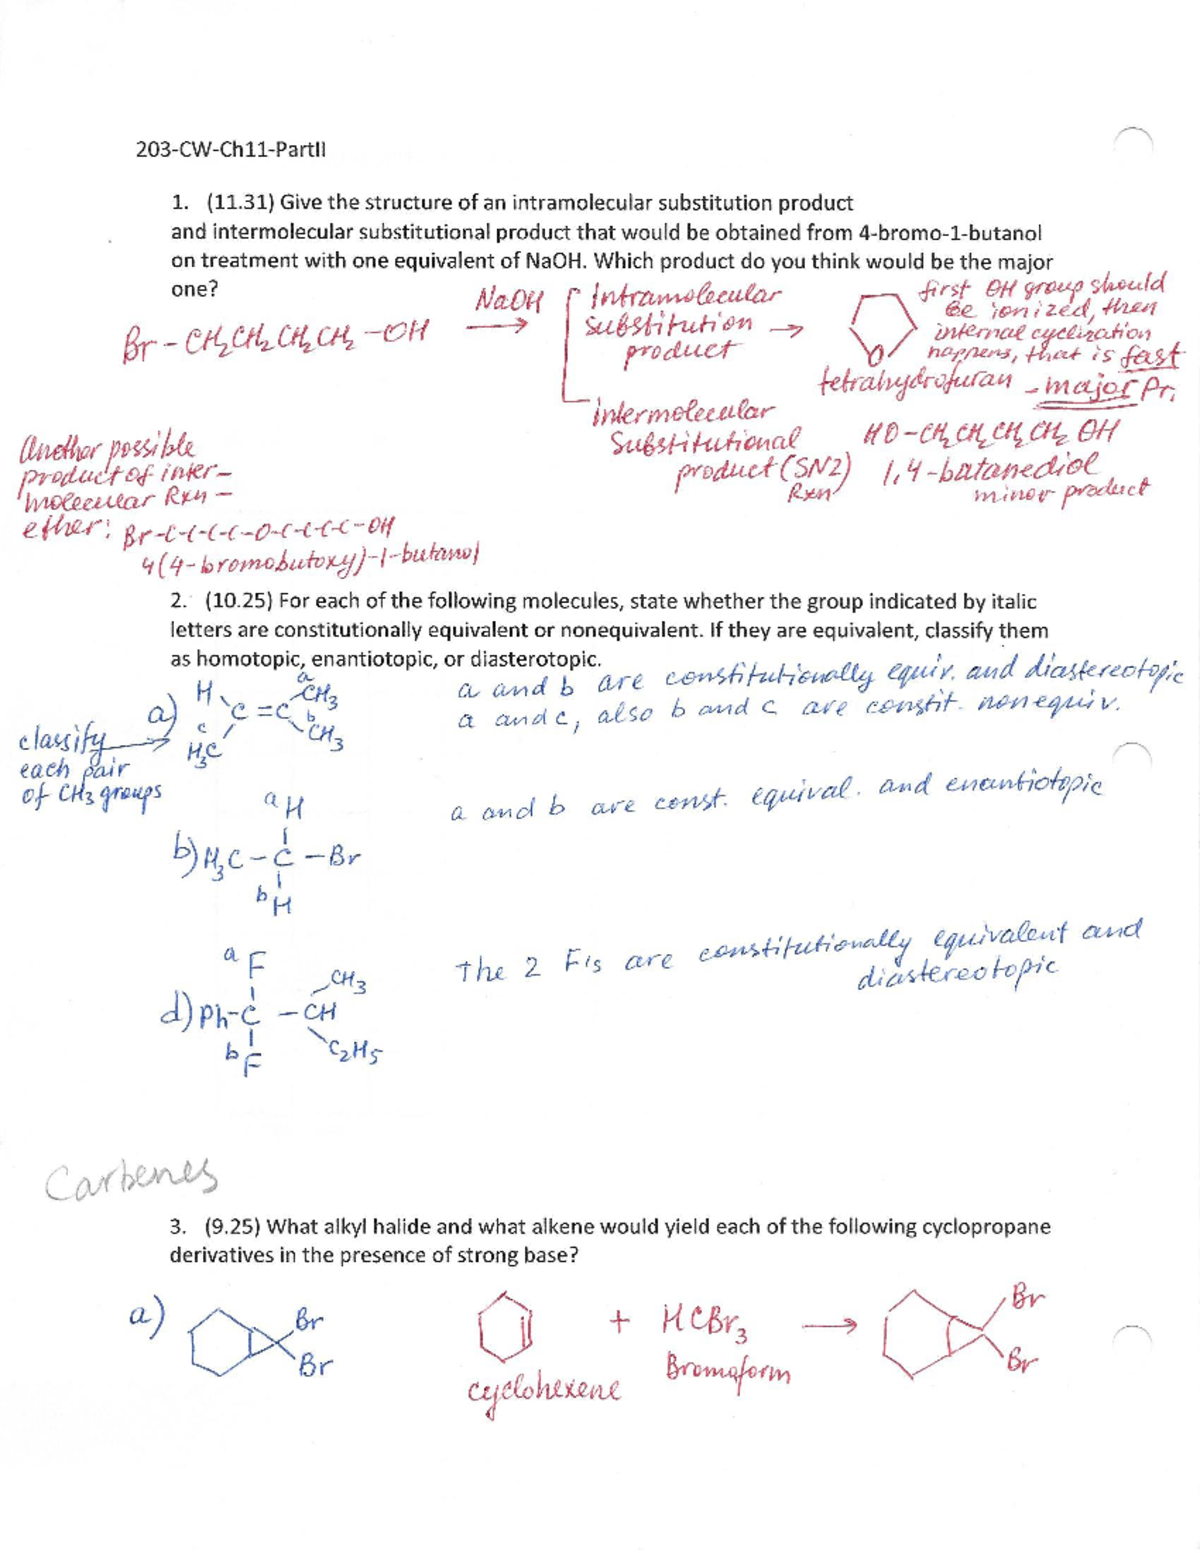 203-CW-Ch11-PartII
1. (11.31) Give the structure of an intramolecular substitution product
and intermolecular substitutional product that would be obtained from 4-bromo-1-butanol
on treatment with one equivalent of NaOH. Which product do you think would be the major
one?
Br - CH2CH2CH2CH2 - OH
NaOH
Intramolecular
substitution
product
O
first OH group should
be ionized, then
internal cyclization
happens, that is fast
tetrahydrofuran - major Pr.
intermolecular
Substitutional
product (SN2)
Rxn
HO-CH2CH2CH2CH2OH
1,4-butanediol
minor product
Another possible
product of inter-
molecular Rxn -
ether: Br-C-C-C-C-O-C-C-C-C-OH
4(4-bromobutoxy)-1-butanol
2. (10.25) For each of the following molecules, state whether the group indicated by italic
letters are constitutionally equivalent or nonequivalent. If they are equivalent, classify them
as homotopic, enantiotopic, or diasterotopic.
classify
each pair
of CH3 groups
a) H
a CH3
C=C
c H3C
b CH3
a and b are constitutionally equiv. and diastereotopic
a and c, also b and c are constit. nonequiv.
a H
b) H3C-C-Br
b H
a and b are const. equival. and enantiotopic
a F
CH3
d) Ph-C-CH
b F
C2H5
The 2 F's are constitutionally equivalent and
diastereotopic
Carbenes
3. (9.25) What alkyl halide and what alkene would yield each of the following cyclopropane
derivatives in the presence of strong base?
a)
Br
Br
cyclohexene
+ HCBr3
Bromoform
Br
Br